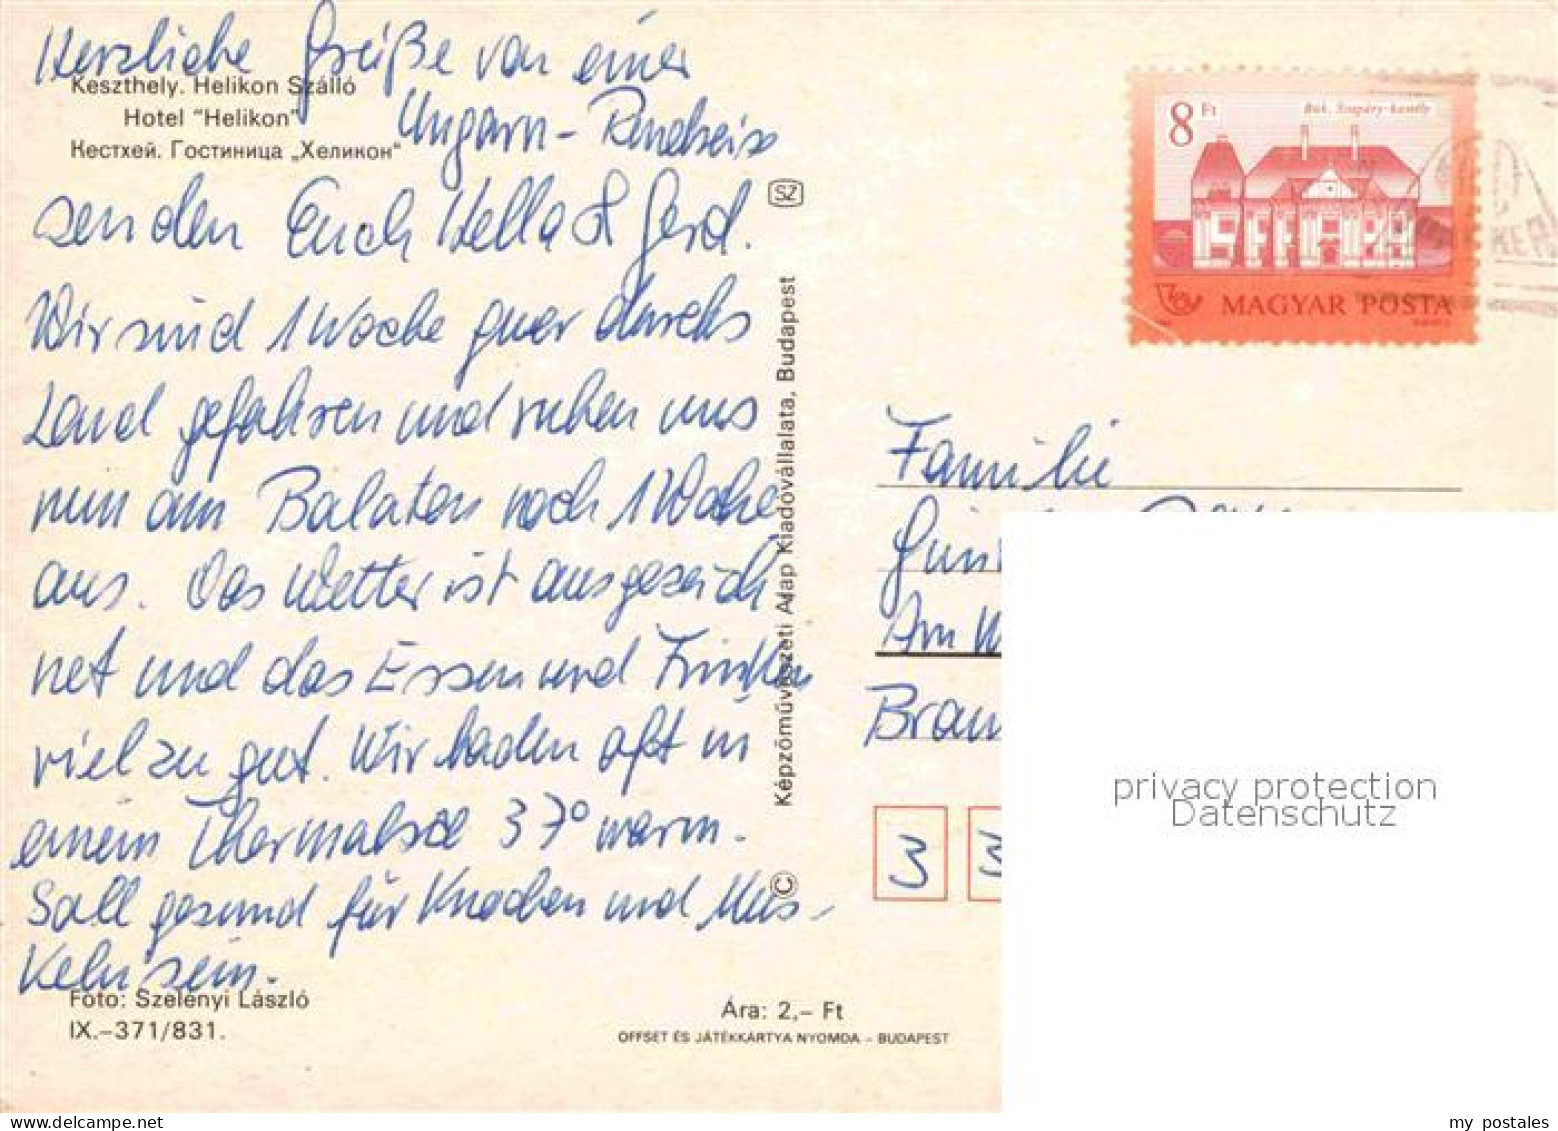 Herzliche Grüße von einer
Keszthely. Helikon Szálló
Hotel "Helikon"
Кестхей. Гостиница „Хеликон"
Ungarn - Rundreise
senden Euch Hella & Gerd.
Wir sind 1 Woche quer durchs
Land gefahren und ruhen uns
nun am Balaton noch 1 Woche
aus. Das Wetter ist ausgezeich
net und das Essen und Trinken
viel zu gut. Wir baden oft in
einem Thermalsee 37° warm.
Soll gesund für Knochen und Mus-
keln sein.
Foto: Szelényi László
IX.-371/831.
Ára: 2,- Ft
OFFSET ÉS JÁTÉKKÁRTYA NYOMDA - BUDAPEST
SZ
© Képzőművészeti Alap Kiadóvállalata, Budapest
8 Ft
Bük. Szapáry-kastély
MAGYAR POSTA
Familie
Am
3 3
privacy protection
Datenschutz
my postales